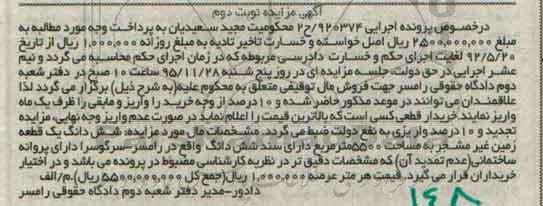 آگهی مزایده نوبت دوم
درخصوص پرونده اجرایی ۹۲۰۳۷۴/ح۲ محکومیت مجید سعیدیان به پرداخت وجه مورد مطالبه به
مبلغ ۲۵۰۰,۰۰۰,۰۰۰ ریال اصل خواسته و خسارت تاخیر تادیه به مبلغ روزانه ۱,۰۰۰,۰۰۰ ریال از تاریخ
۹۲/۵/۲۰ لغایت اجرای حکم و خسارت دادرسی مربوطه که در زمان اجرای حکم محاسبه می گردد و نیم
عشر اجرایی در حق دولت، جلسه مزایده ای در روز پنج شنبه ۹۵/۱۱/۲۸ ساعت ۱۰ صبح در دفتر شعبه
دوم دادگاه حقوقی رامسر جهت فروش مال توقیفی متعلق به محکوم علیه(به شرح ذیل) برگزار می گردد لذا
علاقمندان می توانند در موعد مذکور حاضر شده و ۱۰درصد از وجه خرید را واریز و مابقی را ظرف یک ماه
واریز نمایند.خریدار قطعی کسی است که بالاترین قیمت را اعلام نماید در صورت عدم واریز وجه نهایی، مزایده
تجدید و ۱۰درصد واریزی به نفع دولت ضبط می گردد. مشخصات مال مورد مزایده: شش دانگ یک قطعه
زمین غیر مشجر به مساحت ۵۵۰۰مترمربع دارای سند شش دانگ واقع در رامسر-سرگوسرا دارای پروانه
ساختمانی(عدم تمدید آن) که مشخصات دقیق تر در نظریه کارشناسی مضبوط در پرونده می باشد و در اختیار
خریداران قرار می گیرد. قیمت هر متر عرصه ۱,۰۰۰,۰۰۰ ریال(جمع کل ۵۵۰۰,۰۰۰,۰۰۰ ریال).م/الف
دادور-مدیر دفتر شعبه دوم دادگاه حقوقی رامسر
۱۴۸